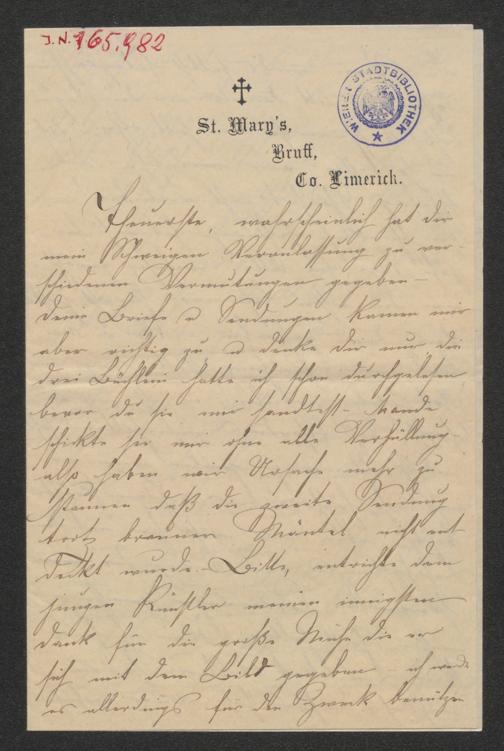 J.N. 165.982
WIENER STADTBIBLIOTHEK
St. Mary's,
Bruff,
Co. Limerick.
Theuerste, wahrscheinlich hat dir
mein Schweigen Veranlassung zu ver-
schiedenen Vermutungen gegeben –
deine Briefe u Sendungen kamen mir
aber richtig zu u denke dir nur die
drei Büchlein hatte ich schon durchgelesen
bevor du sie mir sandtest – Maude
schickte sie mir ohne alle Verhüllung
also haben wir Ursache mehr zu
staunen daß die zweite Sendung
trotz brauner Mäntel nicht ent
deckt wurde – Bitte, entrichte dem
jungen Künstler meinen innigsten
Dank für die große Mühe die er
sich mit dem Bild gegeben – ich werde
es allerdings für den Zweck benützen